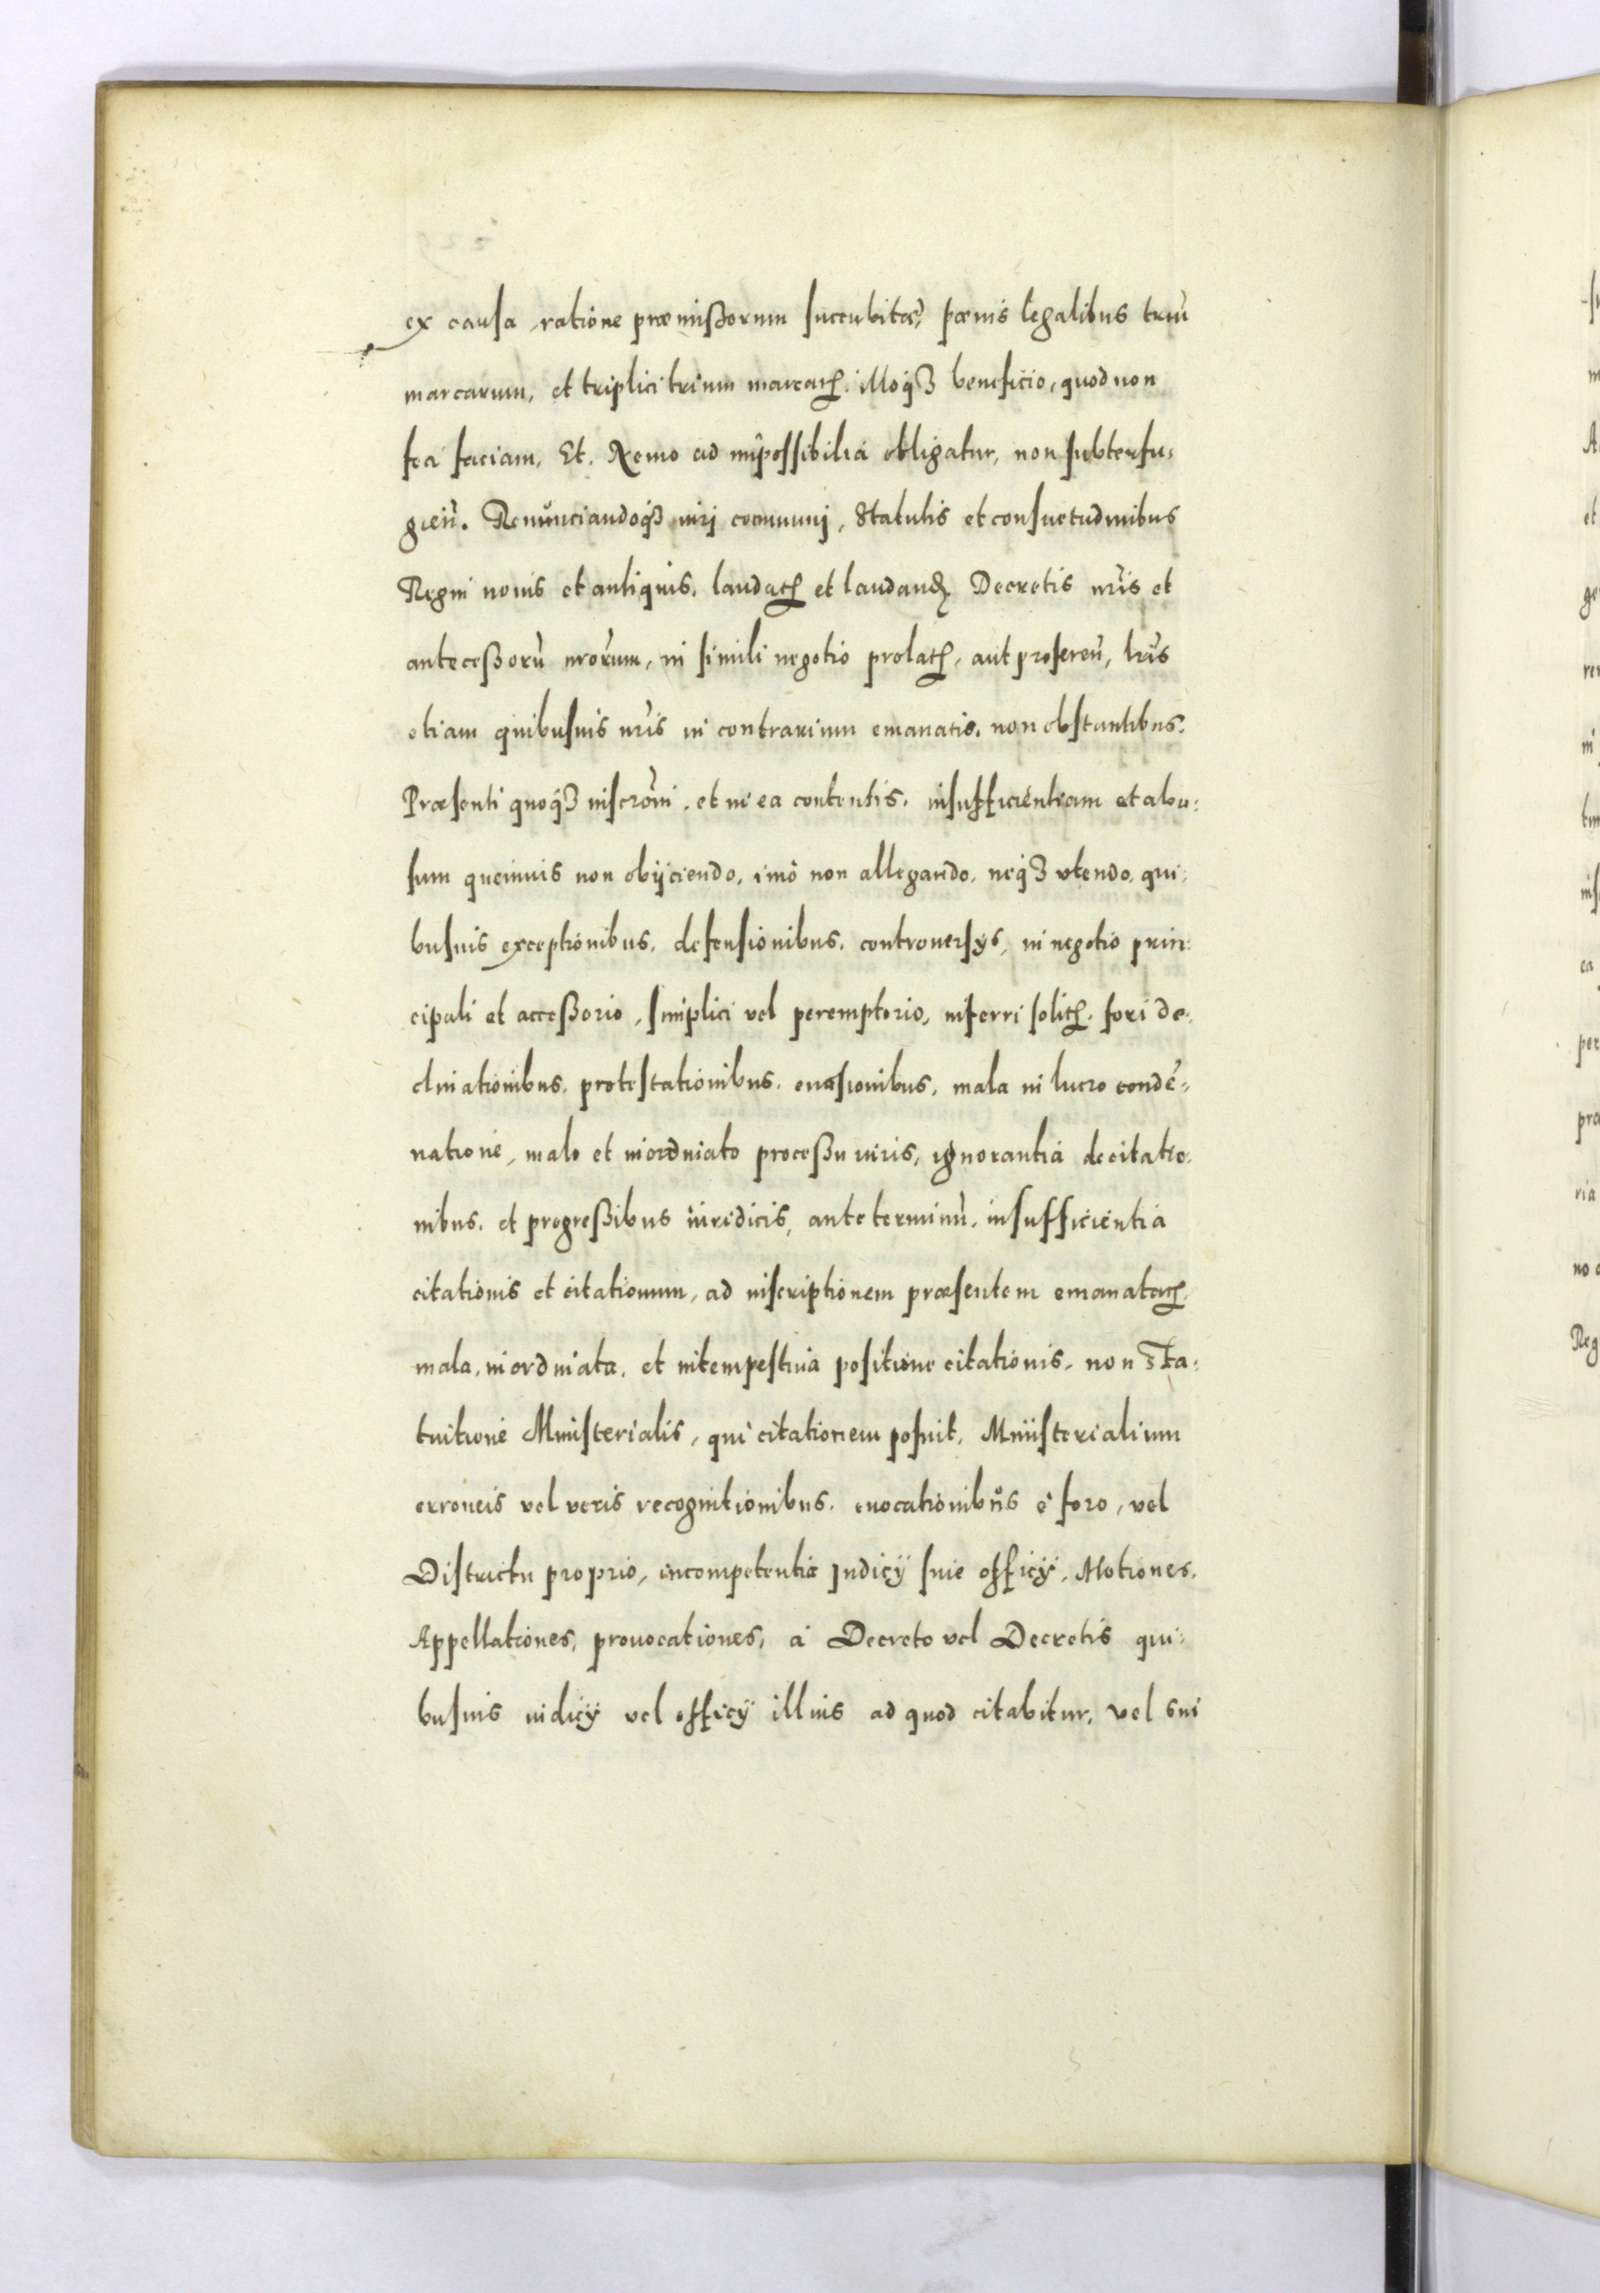 ex causa, ratione præmißorum succubitæ, pœnis legalibus triũ
marcarum, et triplici trium marcarꝝ. illoq́ꝫ beneficio, quod non
feci faciam, Et, Nemo ad impossibilia obligatur, non subterfu:
gieñ. Renunciandoq́ꝫ iuri communj, Statutis et consuetudinibus
Regni nouis et antiquis, laudatꝭ et laudanđ, Decretis nr̃is et
anteceßorũ nr̃orum, in simili negotio prolatꝭ, aut proferen̄, lr̃is
etiam quibusuis nr̃is in contrarium emanatis, non obstantibus.
Præsenti quoq́ꝫ inscr̃oni, et in ea contentis, insufficientiam et abu:
sum quemuis non obijciendo, imò non allegando, neq́ꝫ vtendo, qui:
busuis exceptionibus, defensionibus, controuersys, in negotio prin:
cipali et acceßorio, simplici vel peremptorio, inferri solitꝭ, fori de:
clinationibus, protestationibus, euasionibus, mala in lucro condē:
natione, malo et inordinato proceßu iuris, ignorantia de citatio:
nibus, et progreßibus iuridicis, ante terminũ, insufficientia
citationis et citationum, ad inscriptionem præsentem emanatarꝝ,
mala, inordinata, et intempestiua positione citationis, non Sta:
tuitione Ministerialis, qui citationem posuit, Ministerialium
erroneis vel veris recognitionibus, euocationibus è foro, vel
Districtu proprio, incompetentia Judicÿ siue officÿ, Motiones,
Appellationes, prouocationes, à Decreto vel Decretis qui:
busuis iudicÿ vel officÿ illius ad quod citabitur, vel sui